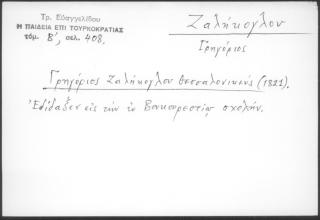 Τρ. Εὐαγγελίδου
Η ΠΑΙΔΕΙΑ ΕΠΙ ΤΟΥΡΚΟΚΡΑΤΙΑΣ
τόμ. Β', σελ. 408.
Ζαλήκογλου
Γρηγόριος
Γρηγόριος Ζαλήκογλου Θεσσαλονικεύς (1821).
Ἐδίδαξεν εἰς τὴν ἐν Βουκουρεστίῳ σχολήν.